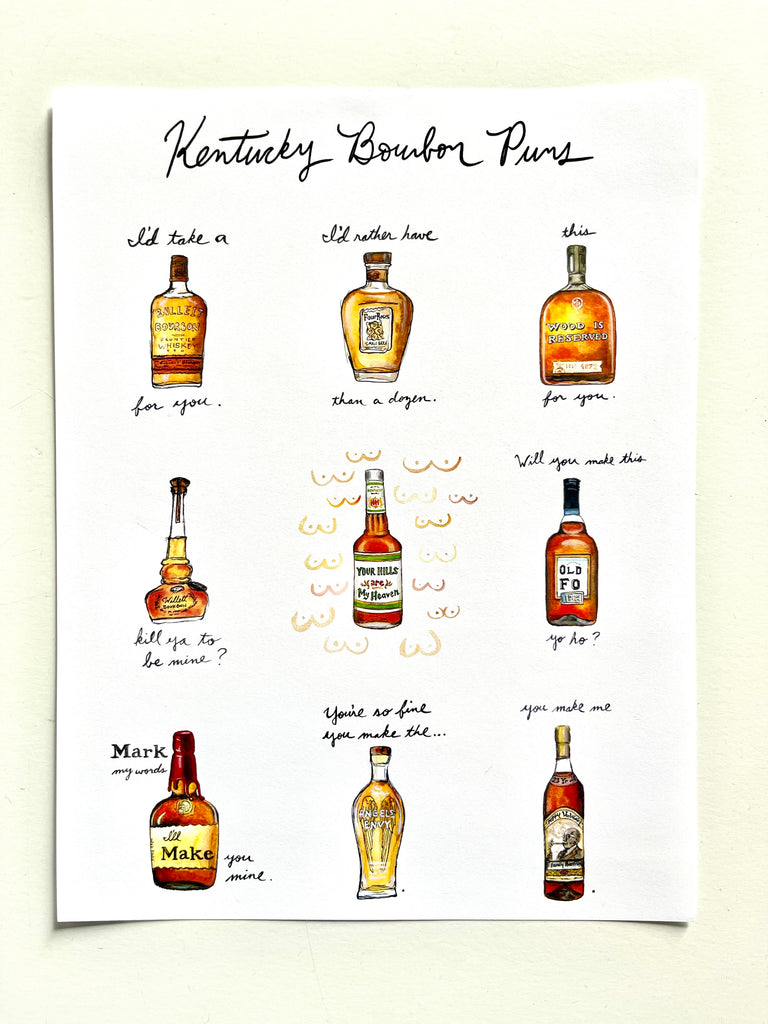 Kentucky Bourbon Puns
I'd take a
BULLEIT
BOURBON
FRONTIER
WHISKEY
for you.
I'd rather have
Four Roses
SMALL BATCH
than a dozen.
this
WOOD IS
RESERVED
for you.
Willett
BOURBON
kill ya to
be mine?
YOUR HILLS
are
My Heaven
Will you make this
OLD
FO
yo ho?
Mark
my words
I'll
Make
you
mine.
You're so fine
you make the...
ANGEL'S
ENVY
.
you make me
Pappy Van Winkle
Family Reserve
.